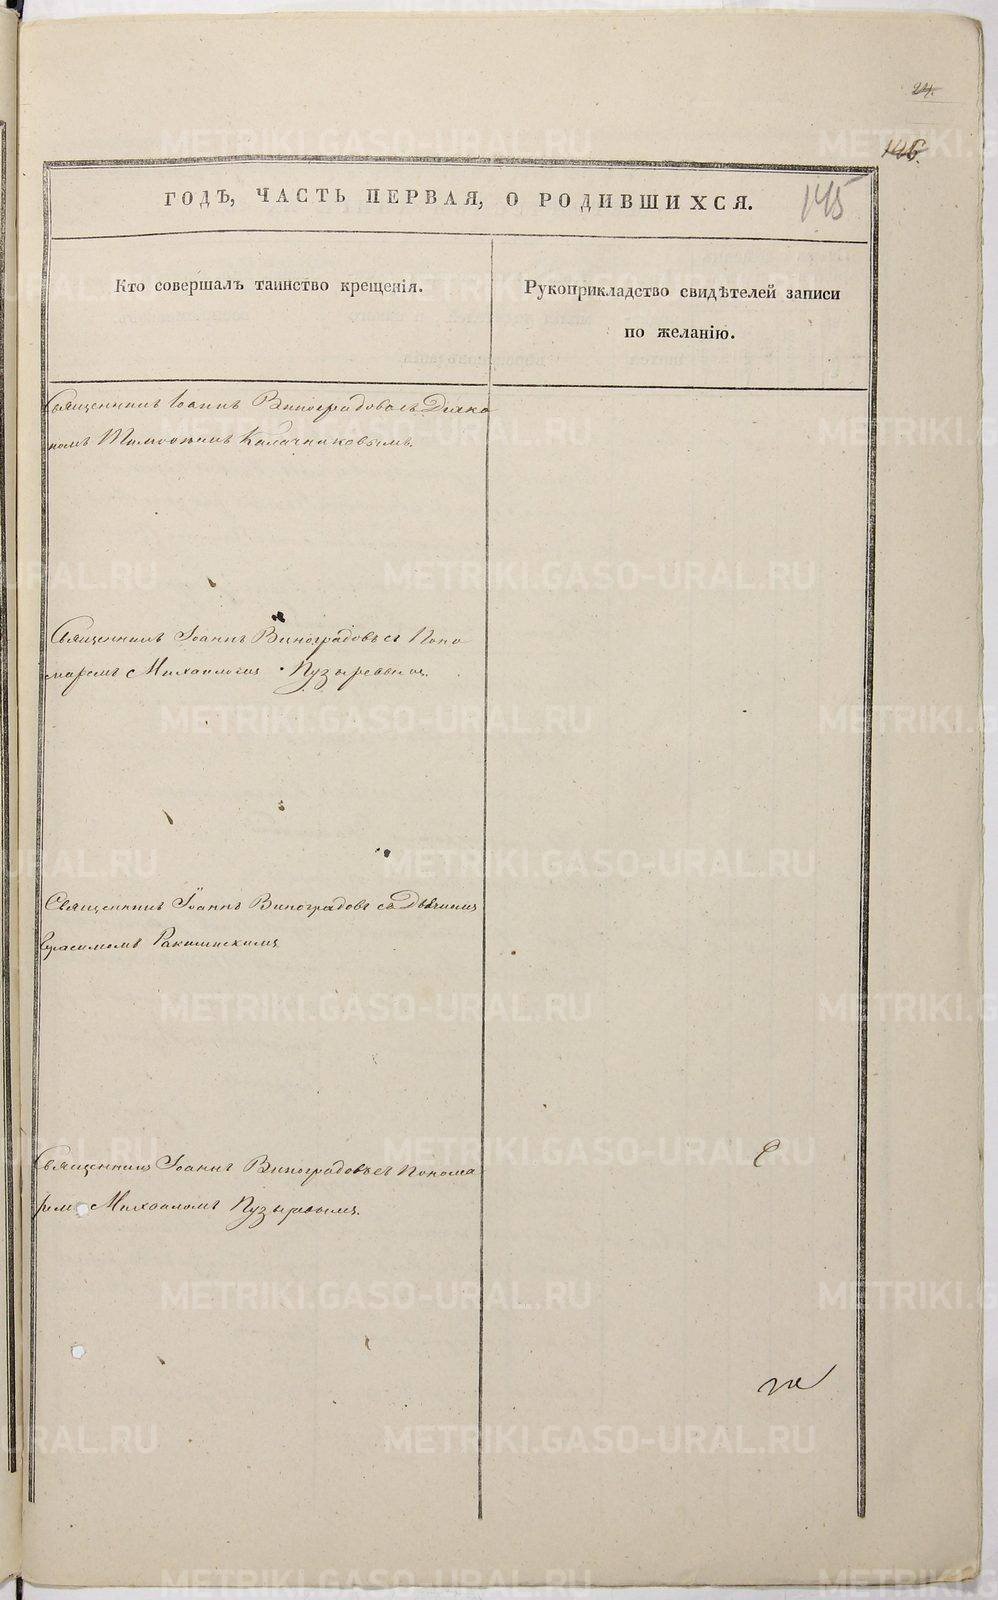 24.
146.
145
ГОДЪ, ЧАСТЬ ПЕРВАЯ, О РОДИВШИХСЯ.
Кто совершалъ таинство крещенія.
Рукоприкладство свидѣтелей записи
по желанію.
Священникъ Іоаннъ Виноградовъ съ Діяко
номъ Тимофеемъ Калачниковымъ.
Священникъ Іоаннъ Виноградовъ съ Поно
маремъ Михаиломъ Пузыревымъ.
Священникъ Іоаннъ Виноградовъ съ
Герасимомъ
Священникъ Іоаннъ Виноградовъ съ Понома
ремъ Михаиломъ Пузыревымъ.
METRIKI.GASO-URAL.RU